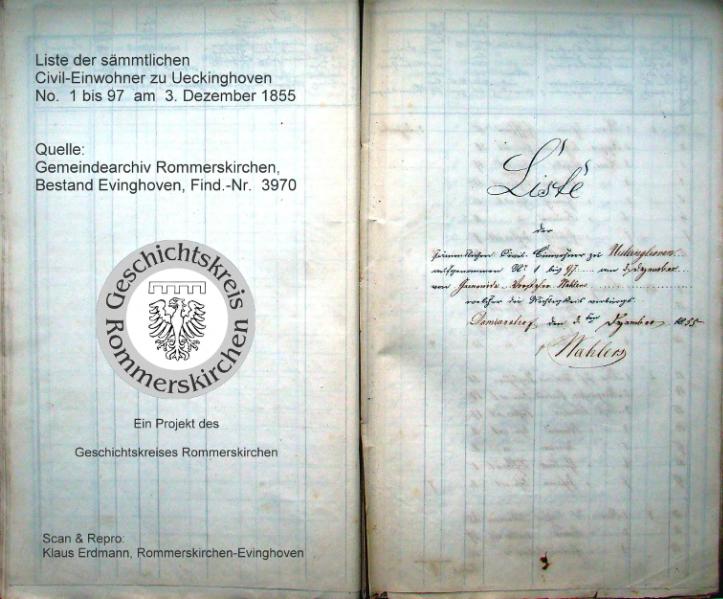 Liste der sämmtlichen
Civil-Einwohner zu Ueckinghoven
No. 1 bis 97 am 3. Dezember 1855
Quelle:
Gemeindearchiv Rommerskirchen,
Bestand Evinghoven, Find.-Nr. 3970
Geschichtskreis
Rommerskirchen
Ein Projekt des
Geschichtskreises Rommerskirchen
Scan & Repro:
Klaus Erdmann, Rommerskirchen-Evinghoven
Liste
der
sämmtlichen Civil-Einwohner zu
aufgenommen No 1 bis 97 am 3 Dezember
von Gemeinde-Vorsteher Wahlers
welcher die Richtigkeit
den 3 Dezember 1855
Wahlers